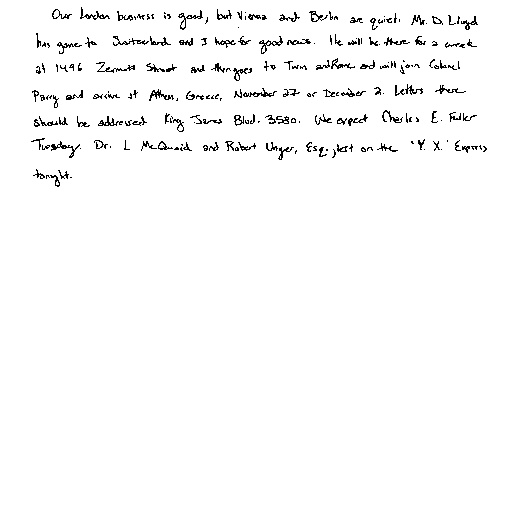 Our London business is good, but Vienna and Berlin are quiet. Mr. D. Lloyd
has gone to Switzerland and I hope for good news. He will be there for a week
at 1496 Zermott Street and then goes to Turin and Rome and will join Colonel
Parry and arrive at Athens, Greece, November 27 or December 2. Letters there
should be addressed King James Blvd. 3580. We expect Charles E. Fuller
Tuesday. Dr. L McQuaid and Robert Unger, Esq., left on the "Y. X." Express
tonight.